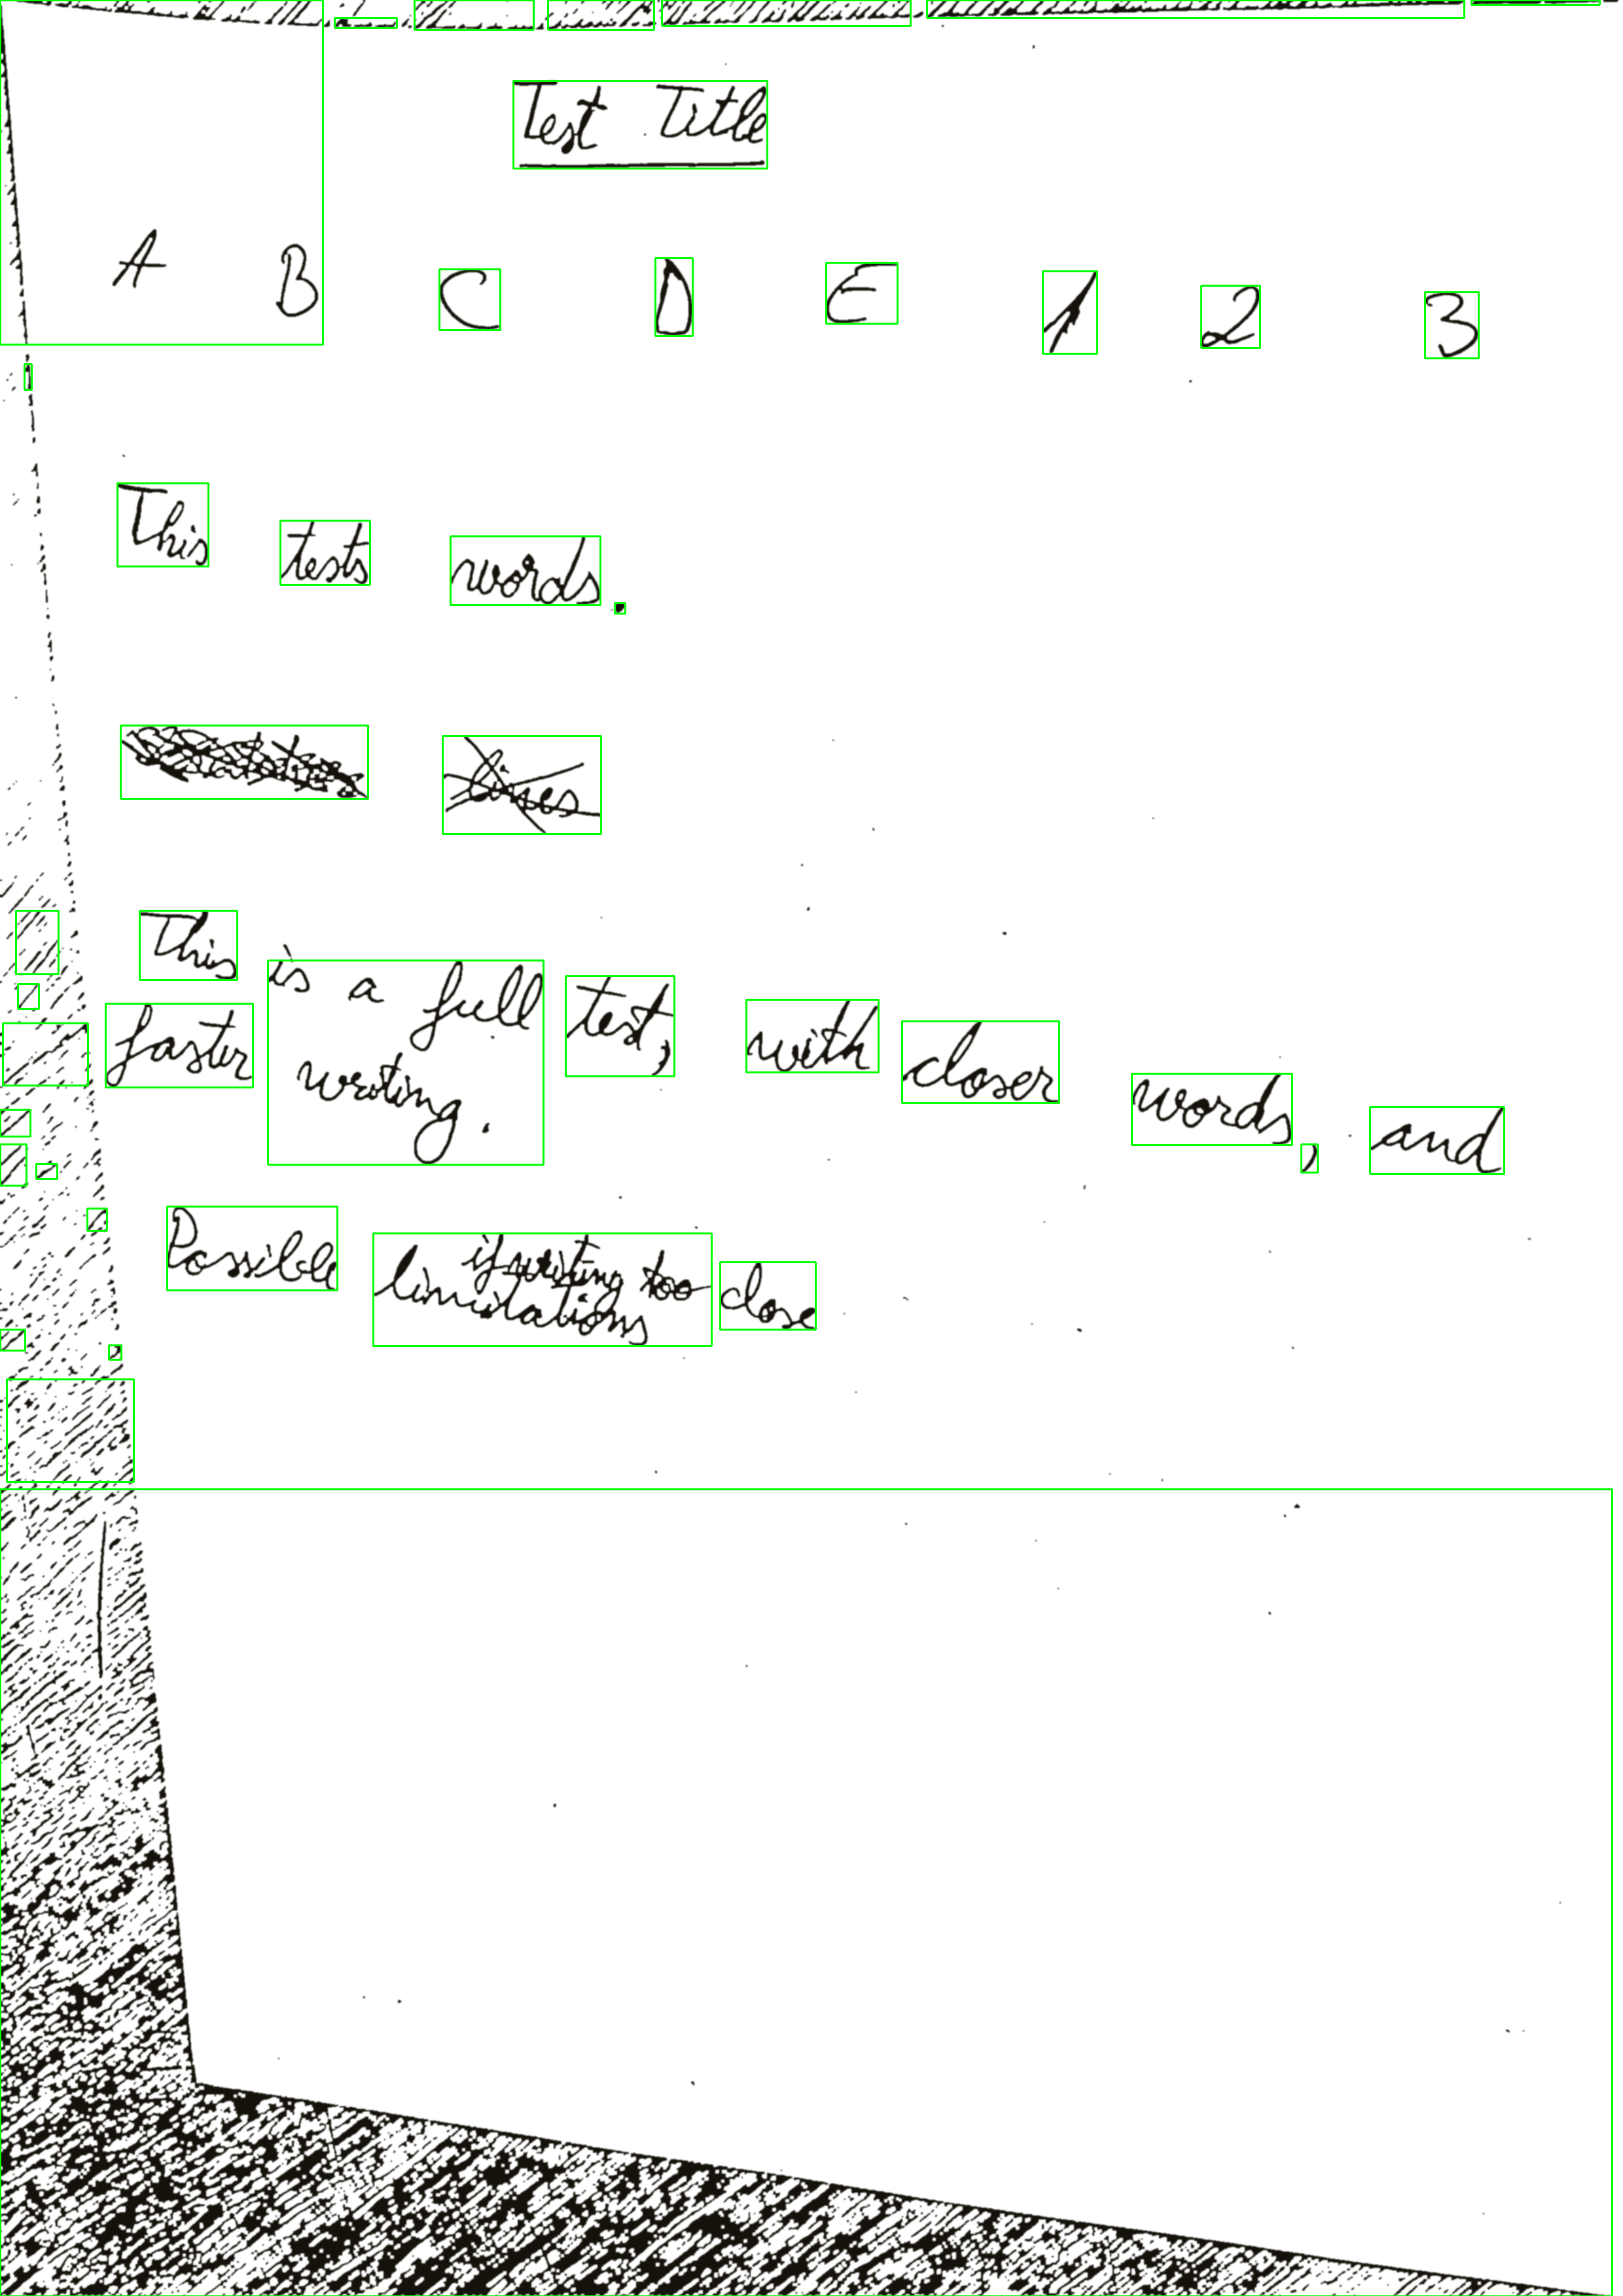 Test Title
A B C D E 1 2 3
This tests words.
This is a full test, with closer words, and
faster writing.
Possible limitations if writing too close